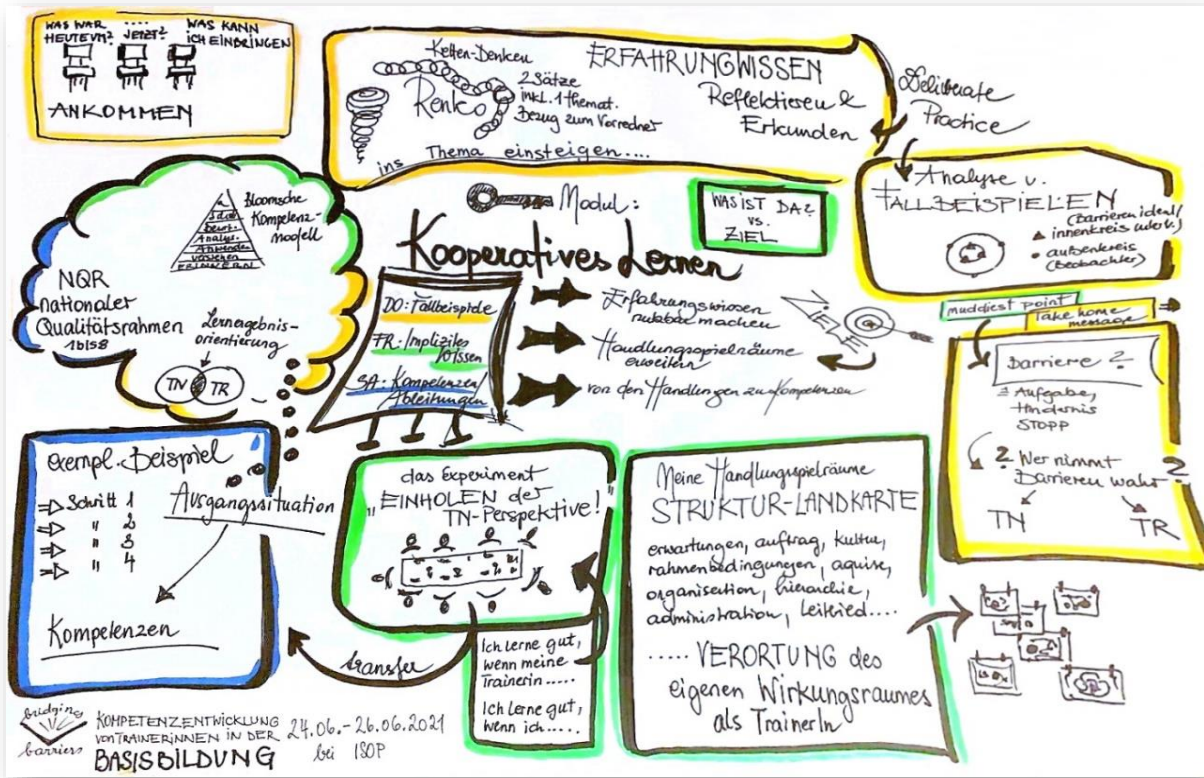 WAS WAR .... WAS KANN
HEUTE VM? JETZT? ICH EINBRINGEN
ANKOMMEN
Ketten-Denken
Renko
2 Sätze
inkl. 1 themat.
Bezug zum Vorredner
ins Thema einsteigen....
ERFAHRUNGWISSEN
Reflektieren &
Erkunden
Deliberate
Practice
Analyse v.
FALLBEISPIELEN
(Barrieren ideal/
innenkreis
• außenkreis
(Beobachter)
Bloomsche
Kompetenz-
modell
Beurt.
Analys.
Anwenden
verstehen
ERINNERN
NQR
nationaler
Qualitätsrahmen
1 bis 8
Lernergebnis-
orientierung
TN TR
Modul:
Kooperatives Lernen
WAS IST DA?
vs.
ZIEL
DO: Fallbeispiele
FR: Implizites
Wissen
SA: Kompetenzen/
Ableitungen
Erfahrungswissen
nutzbar machen
Handlungsspielräume
erweitern
von den Handlungen zu Kompetenzen
ZIEL
muddiest point
Take home
message
Barriere?
= Aufgabe,
Hindernis
STOPP
? Wer nimmt
Barrieren wahr?
TN TR
exempl. Beispiel
Schritt 1
" 2
" 3
" 4
Ausgangssituation
Kompetenzen
das Experiment
"EINHOLEN der
TN-Perspektive!"
transfer
Ich lerne gut,
wenn meine
Trainerin .....
Ich lerne gut,
wenn ich.....
Meine Handlungsspielräume
STRUKTUR-LANDKARTE
erwartungen, auftrag, kultur,
rahmenbedingungen, aquise,
organisation, hierarchie,
administration, leitbild....
..... VERORTUNG des
eigenen Wirkungsraumes
als TrainerIn
bridging
barriers
KOMPETENZENTWICKLUNG
von TRAINERINNEN IN DER
BASISBILDUNG
24.06.-26.06.2021
bei ISOP